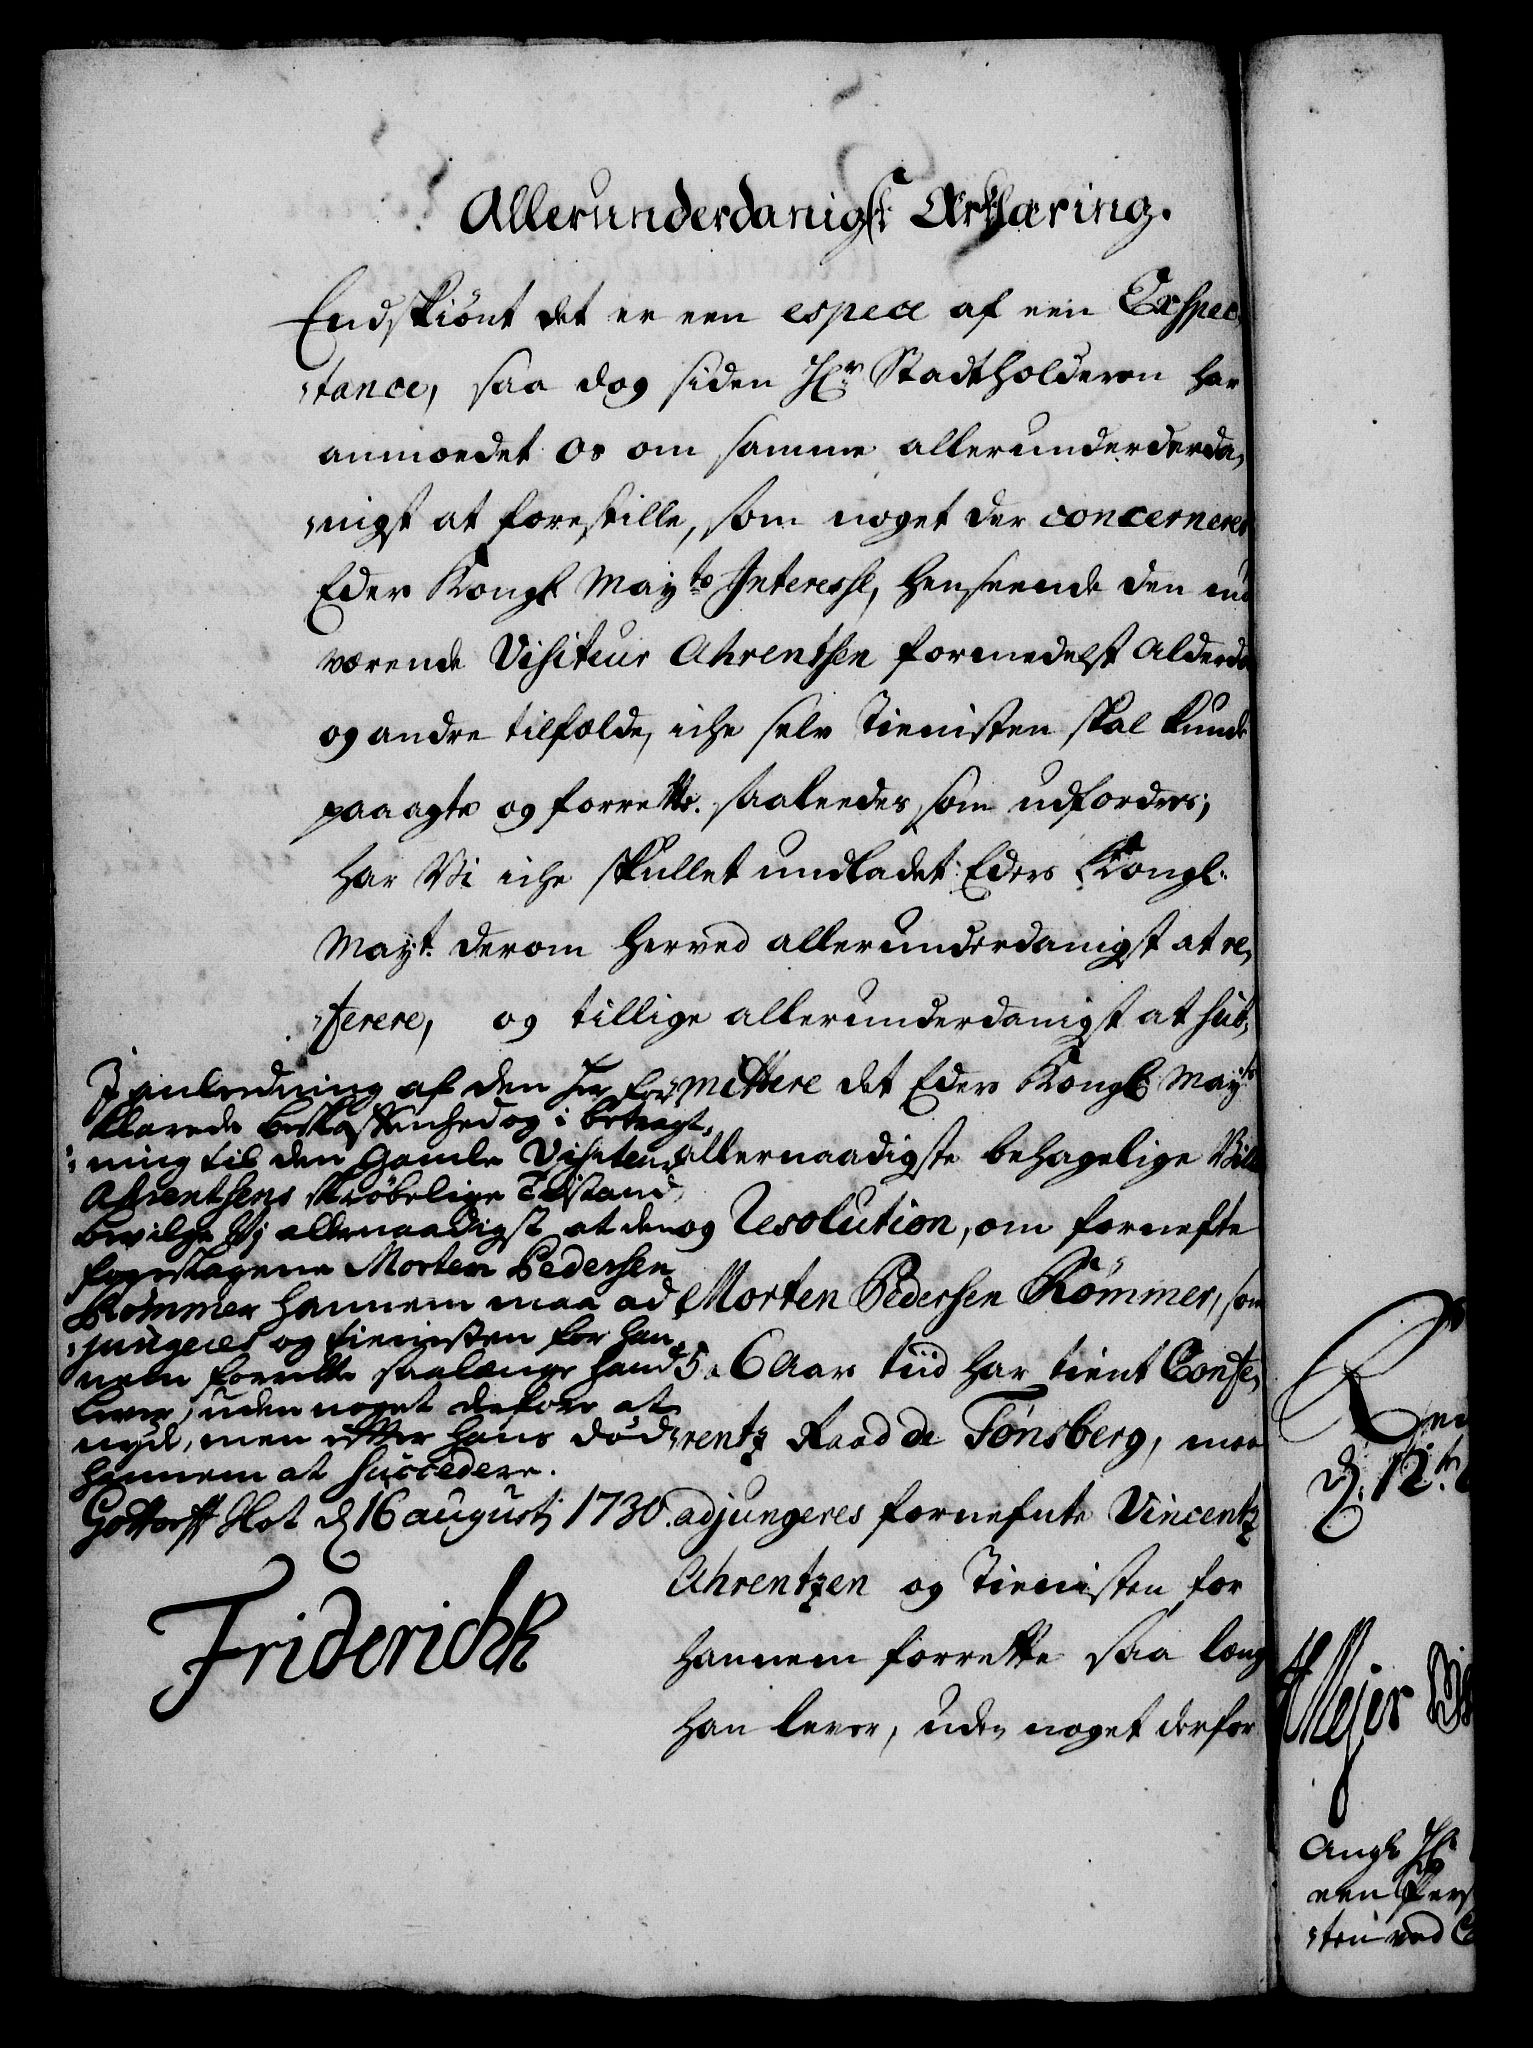 Allerunderdanigst Erklæring.
Endskiönt det er een espece af een Exspec¬
¬tance, saa dog siden Hr Stadtholderen har
anmoedet Os om samme allerunderderda¬
¬nigst at forestille, som noget der concernerer
Eder Kongl Mayts Interesse, henseende den nu
værende Visiteur Ahrentsen formedelst Alderdo
og andre tilfælde, iche selv Tienisten skal kunde
paaagte og forrette saaleedes som udfordres;
Har Vi iche skullet undladet Eders Kongl.
Mayt. derom herved allerunderdanigst at re¬
¬ferere, og tillige allerunderdanigst at sub¬
¬mittere det Eders Kongl Mayts
allernaadigste behagelige Vill
og Resolution, om fornefte
Morten Pedersen Römmer, som
5 a 6 Aar tiid har tient Confe¬
¬rentz Raad de Tønsberg, maa
adjungeres fornefnte Vincentz
Ahrentzen og Tienisten for
hannem forrette saa læng
han lever, uden noget derfor
I anledning af den her for¬
klarede beskaffenhed og i betragt¬
¬ning til den Gamle Visiteur
Ahrentsens skrøbelige Tilstand,
bevilge Vj allernaadigst at den
foreslagene Morten Pedersen
Römmer hannem maa ad
¬jungeres og tienisten for han¬
nem forrette saalænge hand
lever, uden noget derfore at
nyde, men efter hans død
hannem at succedere.
Gottorff Slot d 16 augustj 1730.
Friderich R
Ren
d. 12te
Meyer
Angl. Hr
een Pers
¬ten ved C